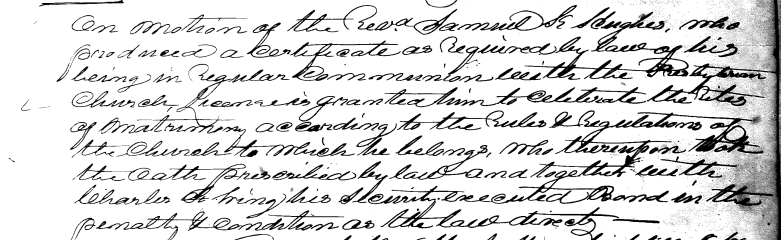 On motion of the Revd Samuel K Hughes, who
produced a certificate as required by law of his
being in regular communion with the Presbyterian
Church, License is granted him to celebrate the rites
of Matrimony according to the rules & regulations of
the Church to which he belongs, who thereupon took
the oath prescribed by law and together with
Charles his security executed Bond in the
penalty & condition as the law directs —